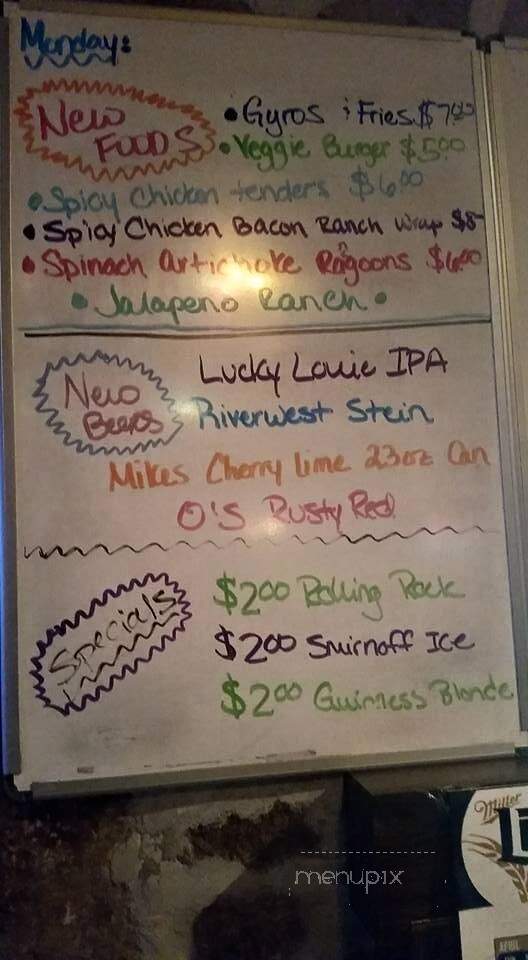 Monday:
New Foods
• Gyros & Fries $7.00
• Veggie Burger $5.00
• Spicy Chicken tenders $6.00
• Spicy Chicken Bacon Ranch Wrap $8-
• Spinach artichoke Ragoons $6.00
• Jalapeno Ranch •
New Beers
Lucky Louie IPA
Riverwest Stein
Mikes Cherry lime 23oz Can
O'S Rusty Red
Specials
$2.00 Rolling Rock
$2.00 Smirnoff Ice
$2.00 Guinness Blonde
Miller
menupix
APRIL